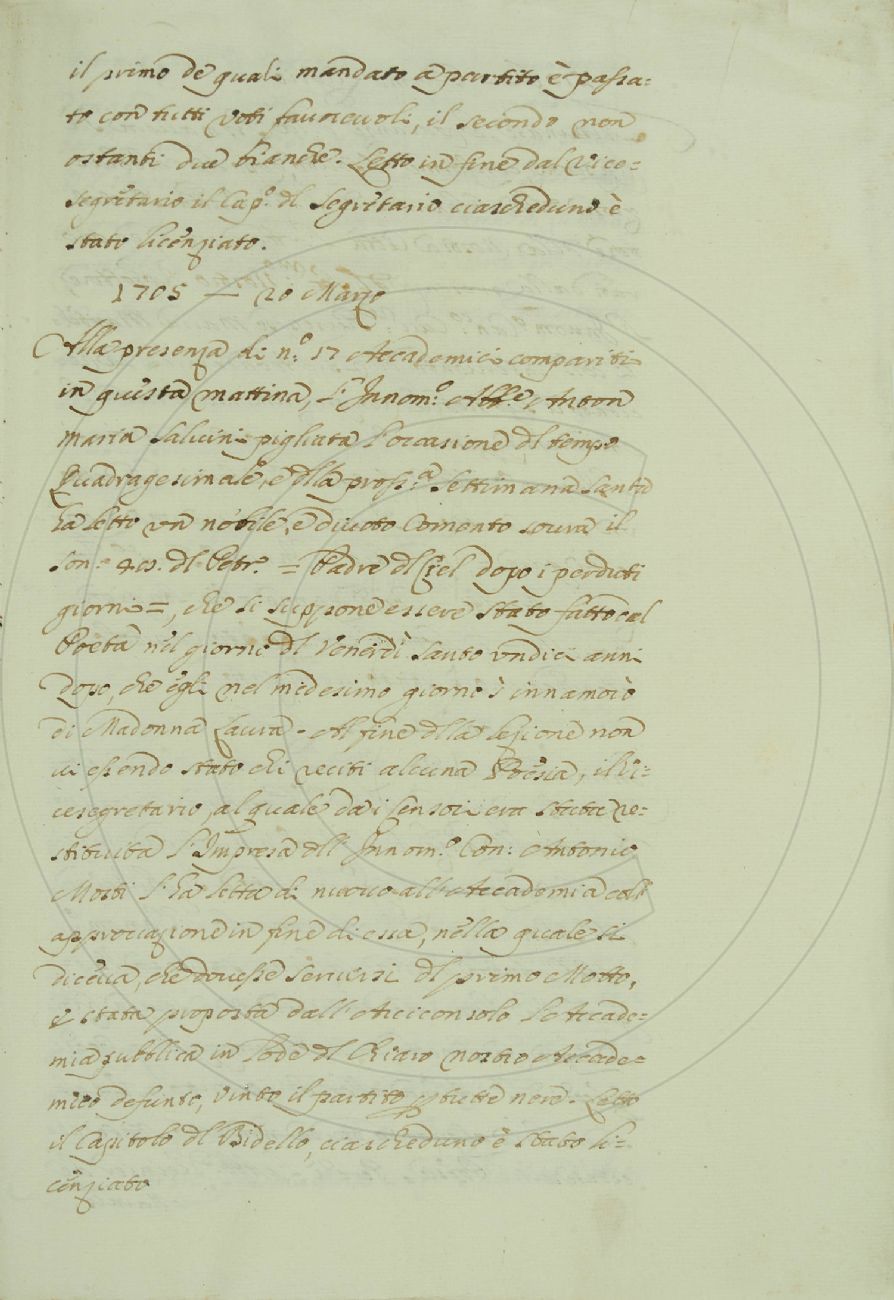 il primo de quali mandato a partito è passa=
to con tutti voti favorevoli, il secondo non
ostanti due bianche. Letto in fine dal Vice=
segretario il Cap.º dl Segretario ciascheduno è
stato licenziato.
1705 — 20 Marzo
Alla presenza di n.º 17 Accademici compariti
in questa mattina, l'Innom.º Abb.e Anton
Maria Salvini pigliata l'occasione dl tempo
Quadragesimale, e dlla pross.a Settimana Santa
ha letto un nobile, e divoto Comento sovra il
Son. dl Petr. = Padre dl Ciel dopo i perduti
giorni =, che si suppone essere stato fatto dal
Poeta nel giorno dl Venerdì Santo undici anni
dopo, che egli nel medesimo giorno s'innamorò
di Madonna Laura. Al fine dlla lezione non
vi essendo stato chi reciti alcuna Poesia, il Vi=
cesegretario, al quale da i Censori era stata re=
stituita l'Impresa dll' Innom.º Con: Antonio
l'ha letta di nuovo all'Accademia coll'
approvazione in fine di essa, nella quale si
diceva, che dovesse servirsi dl primo Motto,
è stata proposta dall'Arciconsolo l'Accade=
mia pubblica in lode dl Chiaro nostro Accade=
mico defunto, vinto il partito p tutte nere. Letto
il Capitolo dl Bidello, ciascheduno è stato li=
cenziato